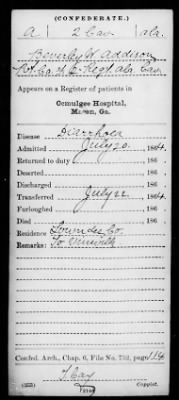 (CONFEDERATE.)
A 2 Cav Ala.
Beverly W Addison
Pvt Co. A 2 Regt Ala Cav
Appears on a Register of patients in
Ocmulgee Hospital,
Macon, Ga.
Disease Diarrhoea
Admitted July 20, 1864
Returned to duty , 186
Deserted , 186
Discharged , 186
Transferred July 22 , 1864
Furloughed , 186
Died , 186
Residence Lowndes Co.
Remarks: To Vineville
Confed. Arch., Chap. 6, File No. 752, page
Copyist.